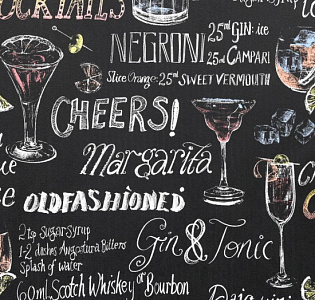 COCKTAILS
Sugar Syrup
NEGRONI
25ml GIN: ice
25ml CAMPARI
Slice Orange: 25ml SWEET VERMOUTH
CHEERS!
Margarita
OLDFASHIONED
2tsp Sugar Syrup
1-2 dashes Angostura Bitters
Splash of water
60ml Scotch Whiskey or Bourbon
Gin & Tonic